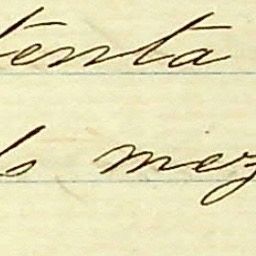 tenta
mez